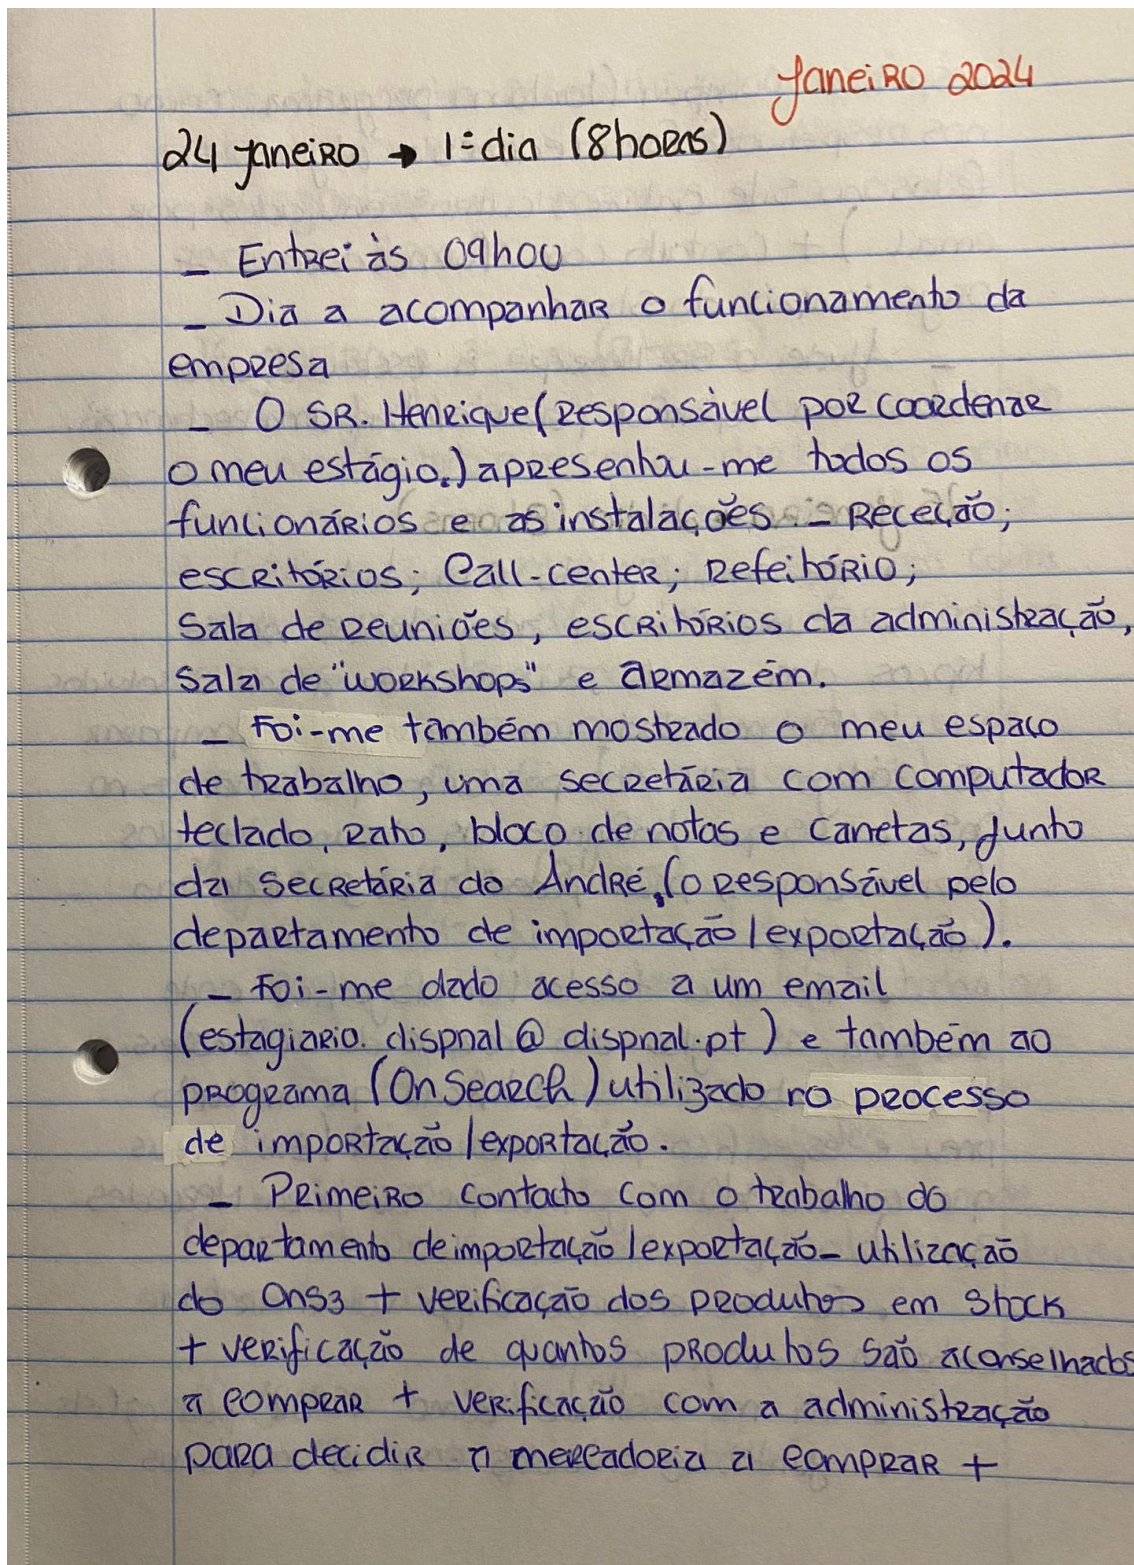 Janeiro 2024
24 janeiro → 1º dia (8 horas)
- Entrei às 09h00
- Dia a acompanhar o funcionamento da
empresa
- O SR. Henrique (responsável por coordenar
o meu estágio.) apresentou-me todos os
funcionários e as instalações - Receção;
escritórios; Call-center; refeitório;
Sala de reuniões, escritórios da administração,
Sala de "workshops" e armazém.
- Foi-me também mostrado o meu espaço
de trabalho, uma secretária com computador
teclado, rato, bloco de notas e canetas, junto
da secretária do André, (o responsável pelo
departamento de importação/exportação).
- Foi-me dado acesso a um email
(estagiario.dispnal@dispnal.pt) e também ao
programa (OnSearch) utilizado no processo
de importação/exportação.
- Primeiro contacto com o trabalho do
departamento de importação/exportação - utilização
do Ons3 + verificação dos produtos em stock
+ verificação de quantos produtos são aconselhados
a comprar + verificação com a administração
para decidir a mercadoria a comprar +